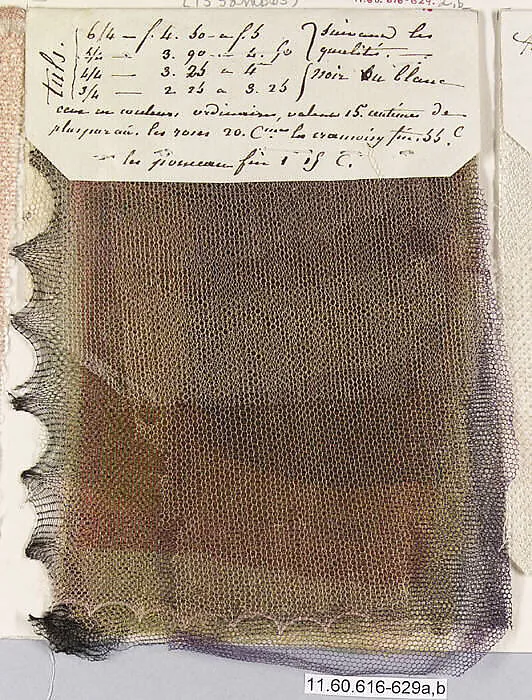 (15 samples)
11.60.616-629a,b
tuls.
6/4 — f. 4. 50 a f 5 suivant les
5/4 — 3. 90 — 4. 50 qualités. —
4/4 — 3. 25 a 4 noir ou blanc
3/4 — 2 25 a 3. 25
ceux en couleurs ordinaires, valent 15 centimes de
plus par au. les roses 20. Cmes les cramoisy fin. 55. C
les ponceau fin 1 15 C.
11.60.616-629a,b